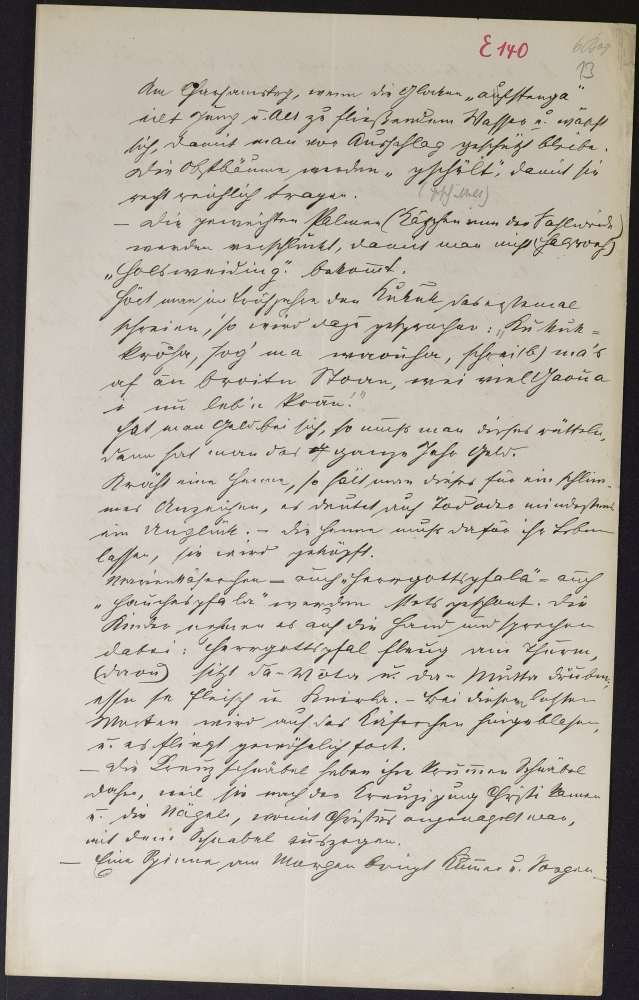 E 140
13
Am Charsamstag, wenn die Glocken „aufstenga"
eilt Jung u. Alt zu fließendem Wasser u. wäscht
sich, damit man vor Ausschlag geschützt bleibe.
Die Obstbäume werden „gschält", damit sie
recht reichlich tragen.
– Die geweihten Palmen (Käzchen von der Sahlweide)
werden verschluckt, damit man nicht (Halsweh)
„Holsweiding". bekomt.
Hört man im Frühjahre den Kukuk das erstemal
schreien, so wird dazu gesprochen: „Kukuk=
kröha, sog' ma waouha, schrei(b) ma's
af än broitn Stoan, wei viel Jaoua
i nu leb'n koan!"
Hat man Geld bei sich, so muß man dieses rütteln,
dann hat man das ganze Jahr Geld.
Kräht eine Henne, so hält man dieses für ein schlim-
mes Anzeichen, es deutet auf Tod oder mindestens
ein Unglück. – die Henne muß dafür ihr Leben
lassen, sie wird geköpft.
Marienkäferchen – auch „Herrgottspfala" – auch
werden stets geschont. Die
Kinder nehmen es auf die Hand und sprechen
dabei: Herrgottspfal fleug am Thurm,
(draou) sitzt da-Vota u. da-Mutta dräubm,
essn sa Fleisch u. – Bei diesen letzten
Worten wird auf das Käferchen hingeblasen,
u. es fliegt gewöhnlich fort.
– Die Kreuzschnäbel haben ihre krummen Schnäbel
daher, weil sie nach der Kreuzigung Christi kamen
u. die Nägel, womit Christus angenagelt war,
mit dem Schnabel auszogen.
– Eine Spinne am Morgen bringt Kummer u. Sorgen